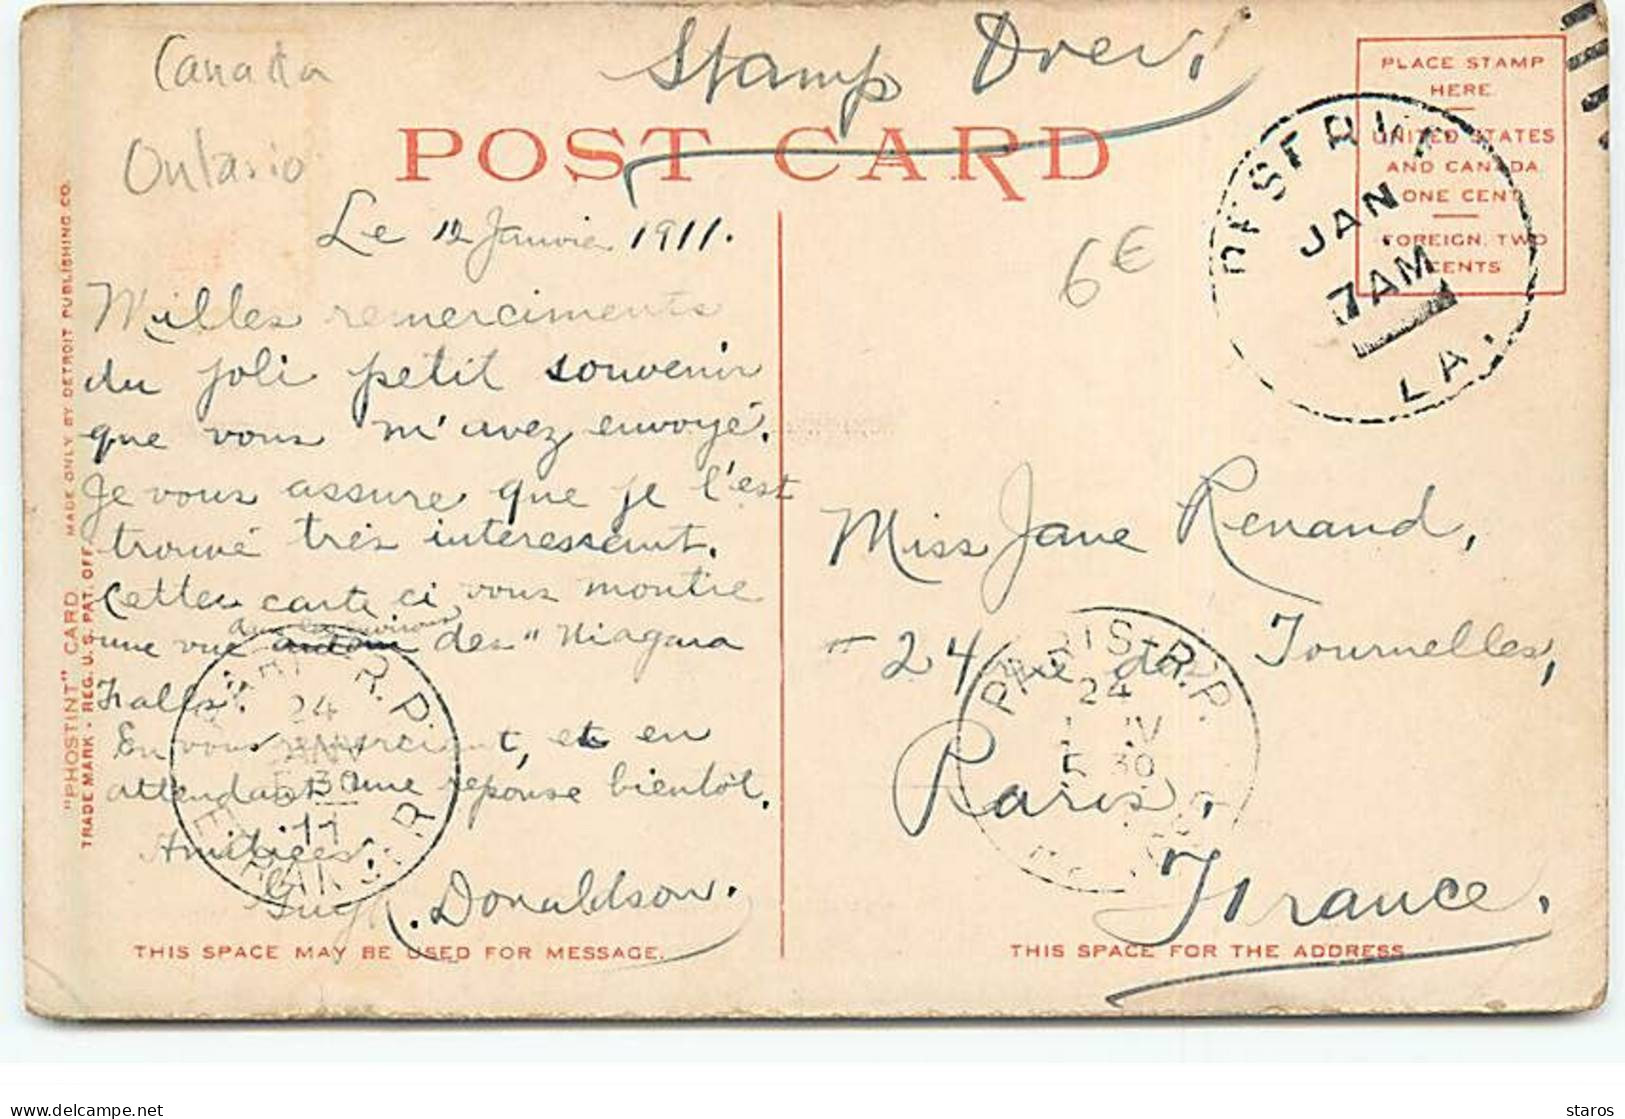 Canada
Ontario
Stamp Over,
POST CARD
PLACE STAMP
HERE
UNITED STATES
AND CANADA
ONE CENT
FOREIGN, TWO
CENTS
DESTR
JAN
7 AM
LA.
6€
"PHOSTINT" CARD MADE ONLY BY DETROIT PUBLISHING CO.
TRADE MARK - REG. U.S. PAT. OFF.
Le 12 Janvier 1911.
Milles remerciments
du joli petit souvenir
que vous m'avez envoyé.
Je vous assure que je l'est
trouvé très interessant.
Cette carte ci vous montre
dans les environs
une vue autour des "Niagara
Falls.
En vous remerciant, et en
attendant une réponse bientôt.
Amitiées
Donaldson.
R.P.
24
JANV
5 30
11
ETRANGER
Miss Jane Renand,
24 rue de Tournelles,
Paris,
France.
PARIS R.P.
24
30
THIS SPACE MAY BE USED FOR MESSAGE.
THIS SPACE FOR THE ADDRESS
delcampe.net
staros